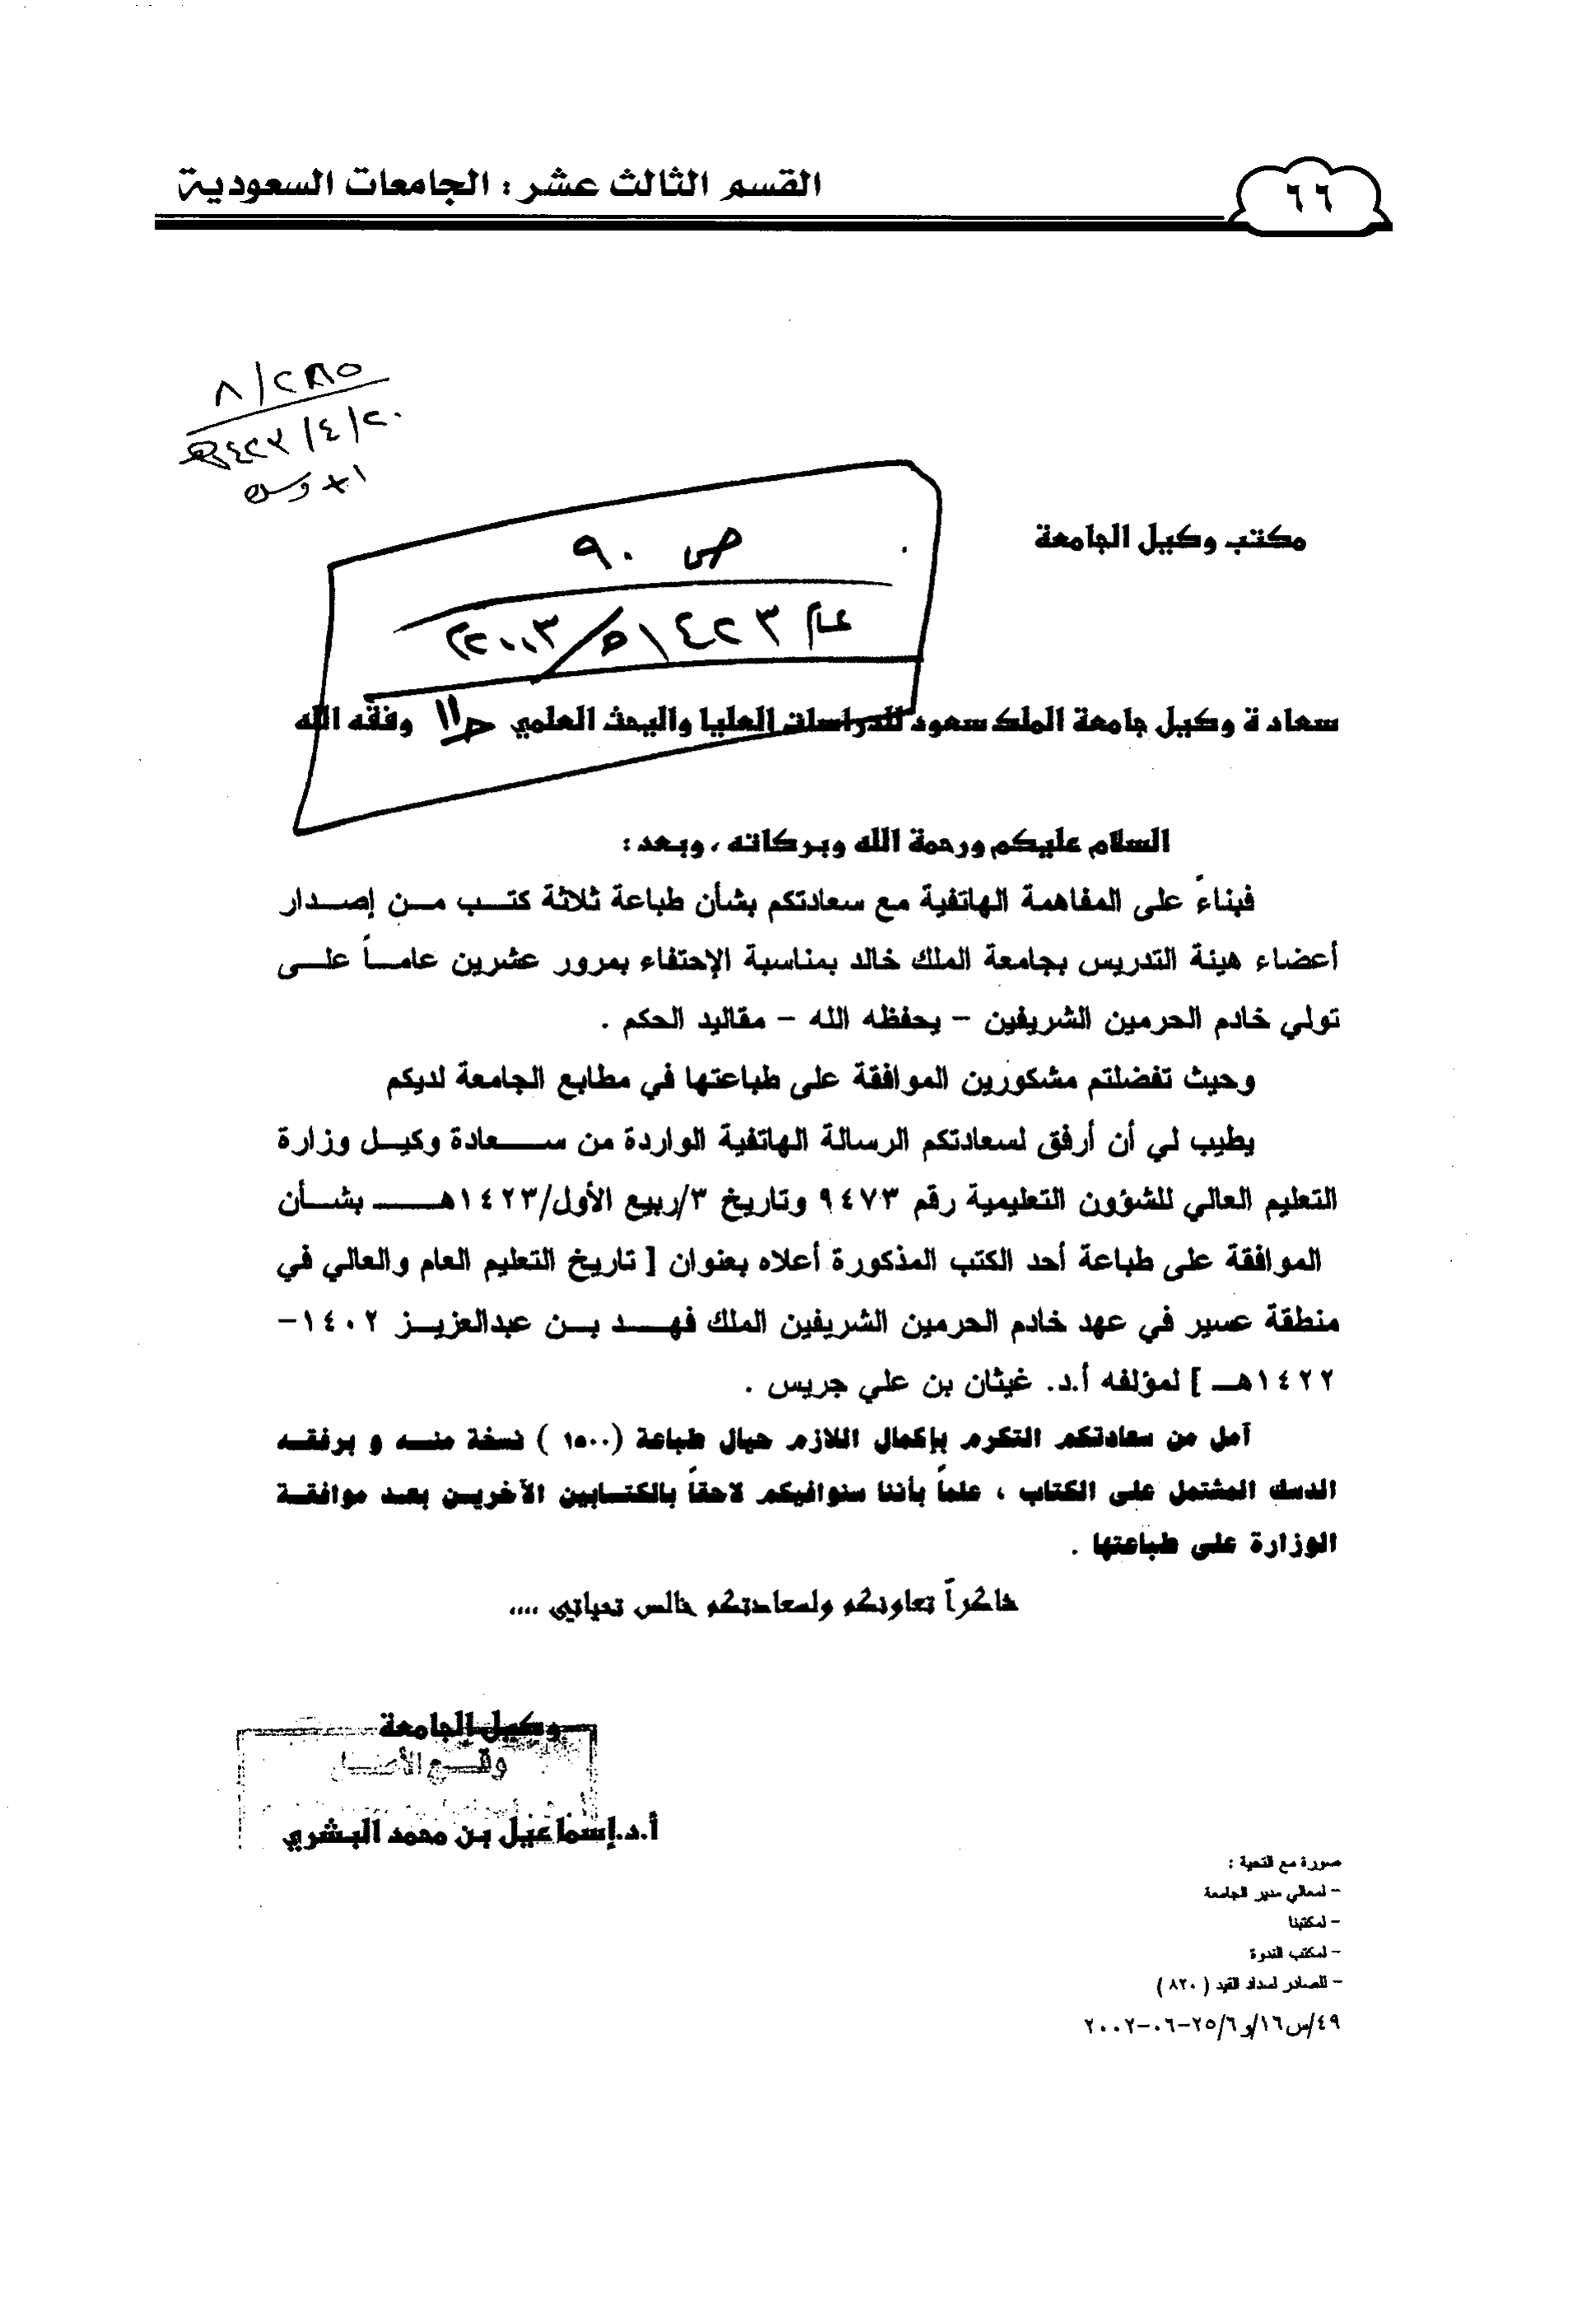 ٦٦
القسم الثالث عشر : الجامعات السعودية
٨/٢٨٥
١٤٢٣/٤/٢٠هـ
مكتب وكيل الجامعة
ص ٩٠
عام ١٤٢٣هـ/٢٠٠٣م
سعادة وكيل جامعة الملك سعود للدراسات العليا والبحث العلمي وفقه الله
السلام عليكم ورحمة الله وبركاته ، وبعد :
فبناءً على المفاهمة الهاتفية مع سعادتكم بشأن طباعة ثلاثة كتب من إصدار
أعضاء هيئة التدريس بجامعة الملك خالد بمناسبة الإحتفاء بمرور عشرين عاماً على
تولي خادم الحرمين الشريفين – يحفظه الله – مقاليد الحكم .
وحيث تفضلتم مشكورين الموافقة على طباعتها في مطابع الجامعة لديكم
يطيب لي أن أرفق لسعادتكم الرسالة الهاتفية الواردة من سعادة وكيل وزارة
التعليم العالي للشؤون التعليمية رقم ٩٤٧٣ وتاريخ ٣/ربيع الأول/١٤٢٣هـ بشأن
الموافقة على طباعة أحد الكتب المذكورة أعلاه بعنوان [ تاريخ التعليم العام والعالي في
منطقة عسير في عهد خادم الحرمين الشريفين الملك فهد بن عبدالعزيز ١٤٠٢–
١٤٢٢هـ ] لمؤلفه أ.د. غيثان بن علي جريس .
آمل من سعادتكم التكرم بإكمال اللازم حيال طباعة (١٥٠٠ ) نسخة منه و برفقه
الدسك المشتمل على الكتاب ، علماً بأننا سنوافيكم لاحقاً بالكتابين الآخرين بعد موافقة
الوزارة على طباعتها .
شاكراً تعاونكم ولسعادتكم خالص تحياتي ....
وكيل الجامعة
وقع الأصل
أ.د.إسماعيل بن محمد البشري
صورة مع التحية :
– لمعالي مدير الجامعة
– لمكتبنا
– لمكتب الندوة
– للصادر لسداد القيد ( ٨٢٠ )
٤٩/س١٦/و٢٥/٦–٠٦–٢٠٠٢